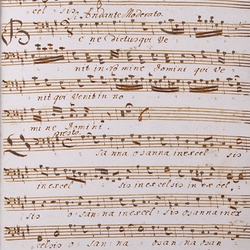 cel - sis
Andante Moderato.
Benedictus qui Ve
nit in nomine Domini qui Ve
nit qui Venit in no
mine Domini.
presto.
Osanna osanna in excel
in excel sis in excelsis,
sis o - san - na in excel - sis osanna in ex
cel sis o - san - na osanna osan